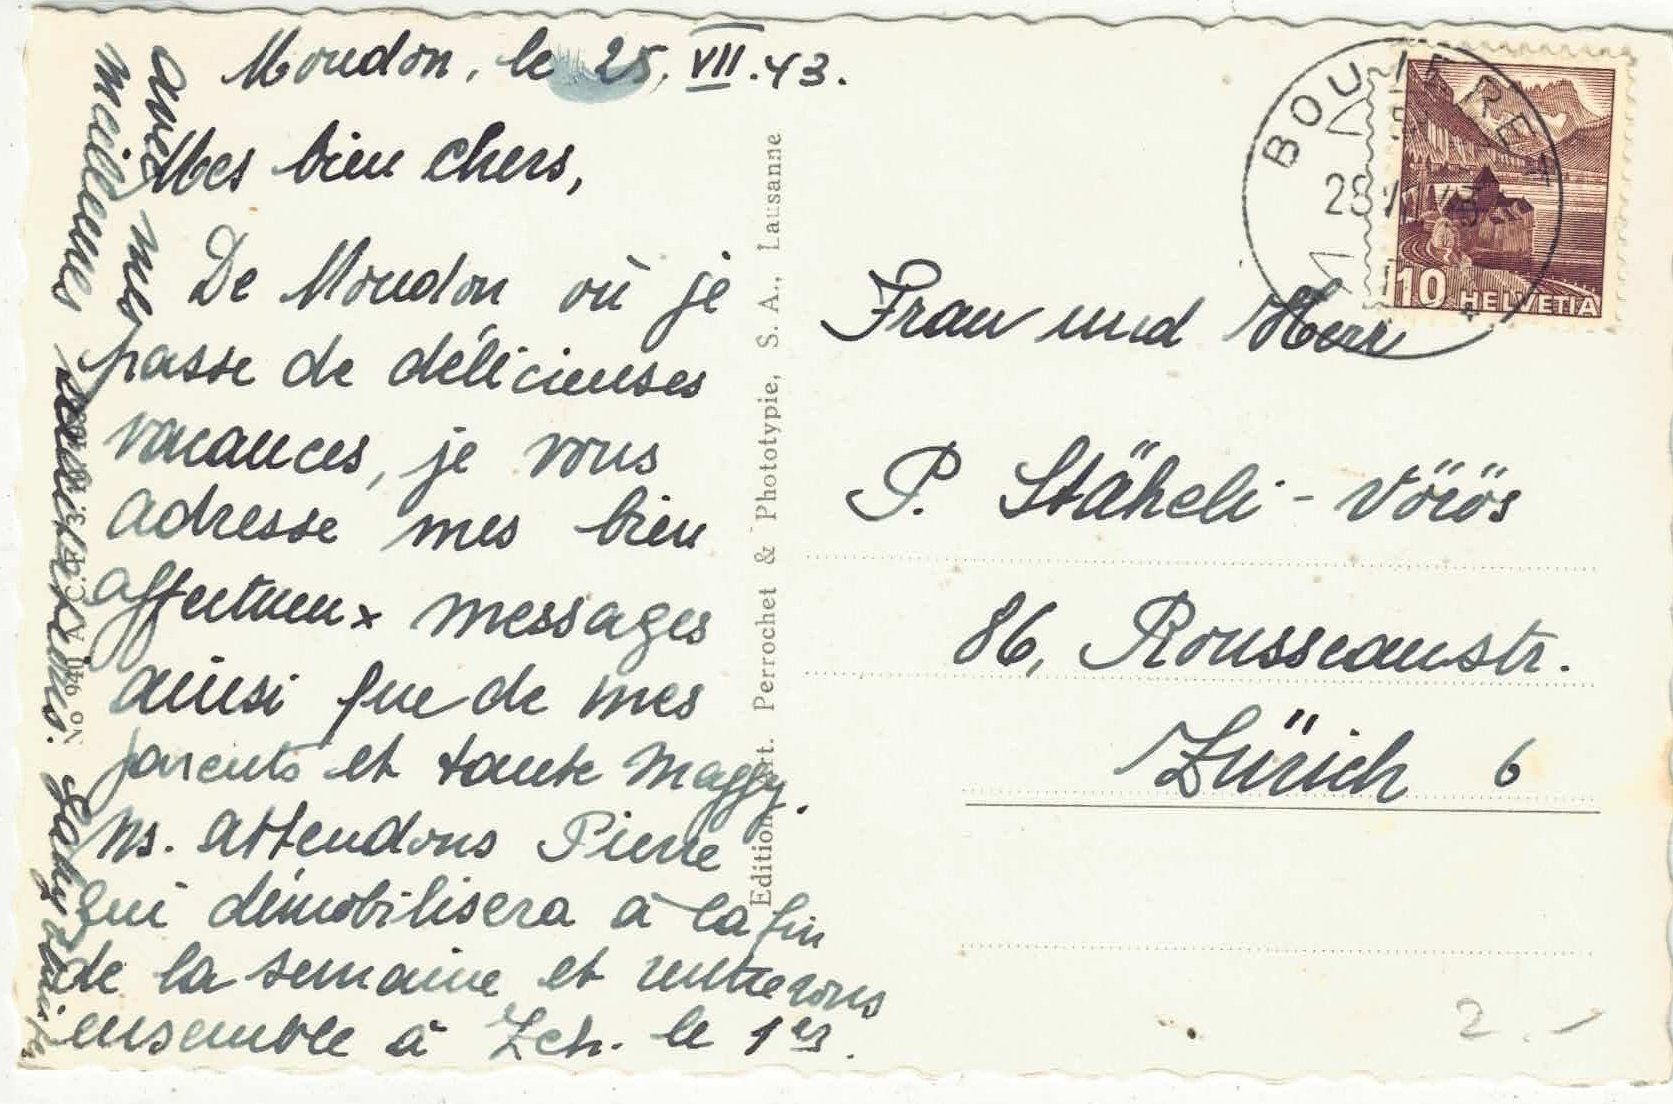 Moudon, le 25. VII. 43.
Mes bien chers,
De Moudon où je
passe de délicieuses
vacances, je vous
adresse mes bien
affectueux messages
ainsi que de mes
parents et tante Maggy.
Ns. attendons Pierre
qui démobilisera à la fin
de la semaine et rentrerons
ensemble à Zch. le 1er.
avec mes
meilleurs
Edition Perrochet & Phototypie, S. A., Lausanne
No 940 A
BOUVERET
28
10 HELVETIA
Frau und Herr
P. Stäheli-Vörös
86, Rousseaustr.
Zürich 6
2.-